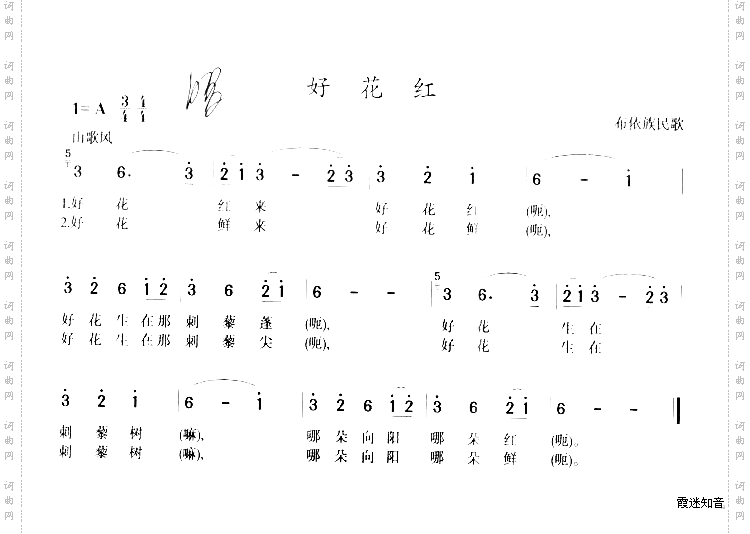 好 花 红
1= A 3/4 4/4
布依族民歌
山歌风
5 3 6. 3 2 1 3 - 2 3 3 2 1 6 - 1
1.好 花 红 来 好 花 红 (呃),
2.好 花 鲜 来 好 花 鲜 (呃),
3 2 6 1 2 3 6 2 1 6 - - 5 3 6. 3 2 1 3 - 2 3
好 花 生 在 那 刺 藜 蓬 (呃), 好 花 生 在
好 花 生 在 那 刺 藜 尖 (呃), 好 花 生 在
3 2 1 6 - 1 3 2 6 1 2 3 6 2 1 6 - -
刺 藜 树 (嘛), 哪 朵 向 阳 哪 朵 红 (呃)。
刺 藜 树 (嘛), 哪 朵 向 阳 哪 朵 鲜 (呃)。
霞迷知音
词曲网